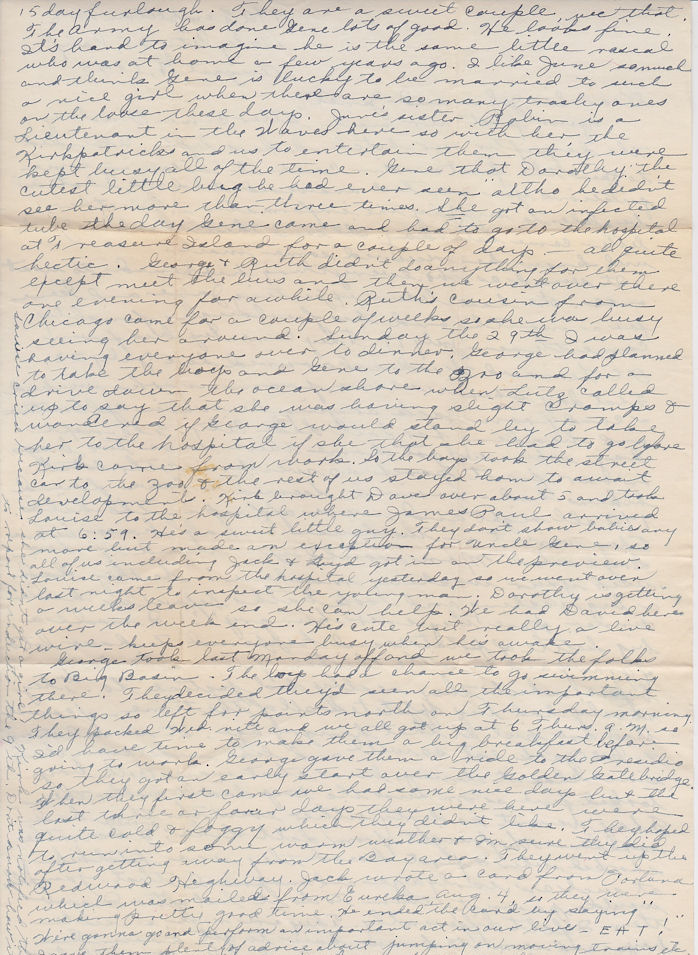 15 day furlough. They are a sweet couple, we that
The army has done Gene lots of good. He looks fine.
It's hard to imagine he is the same little rascal
who was at home a few years ago. I like June so much
and think Gene is lucky to be married to such
a nice girl when there are so many trashy ones
on the loose these days. June's sister Robin is a
Lieutenant in the Waves here so with her, the
Kirkpatricks and us to entertain them they were
kept busy all of the time. Gene that Dorothy the
cutest little bug he had ever seen altho he didn't
see her more than three times. She got an infected
tube the day Gene came and had to go to the hospital
at Treasure Island for a couple of days — al quite
hectic. George & Ruth didn't do anything for them
except meet the bus and they, we went over there
one evening for awhile. Ruth's cousin from
Chicago came for a couple of weeks so she was busy
seeing her around. Sunday the 29th I was
having everyone over to dinner. George had planned
to take the boys and Gene to the Zoo and for a
drive down the ocean shore when Lutz called
up to say that she was having slight cramps &
wondered if George would stand by to take
her to the hospital if she that she had to go before
Kirk came from work. So the boys took the street
car to the zoo & the rest of us stayed hom to await
developments. Kirk brought Dave over about 5 and took
Louise to the hospital where James Paul arrived
at 6:59. He's a sweet little guy. They don't show babies any
more but made an exception for Uncle Gene, so
all of us including Jack & Loyd got in on the preview.
Louise came from the hospital yesterday so we went over
last night to inspect the young man. Dorothy is getting
a weeks leave so she can help. We had David here
over the week end. His cute but really a live
wire — keeps everyone busy when his awake.
George took last Monday off and we took the folks
to Big Basin. The boys had a chance to go swimming
there. They decided they'd seen all the important
things so left for points north on Thursday morning.
They packed Wed. nite and we all got up at 6 Thurs. A.M. so
I'd have time to make them a big breakfast before
going to work. George gave them a ride to the Presidio
so they got an early start over the Golden Gate bridge.
When they first came we had some nice days but the
last three or four days they were here were
quite cold & foggy which they didn't like. They hoped
to run into some warm weather & I'm sure they did
after getting away from the Bay area. They went up the
Redwood Highway. Jack wrote a card from Fortuna
which was mailed from Eureka Aug. 4, so they were
making pretty good time. He ended the card by saying "
We're gonna go and perform an important act in our lives - EAT!"
I gave them plenty of advice about jumping on moving trains etc.
Louise cried because she didn't get a girl. Kirk was notified
to report for induction the 9th.